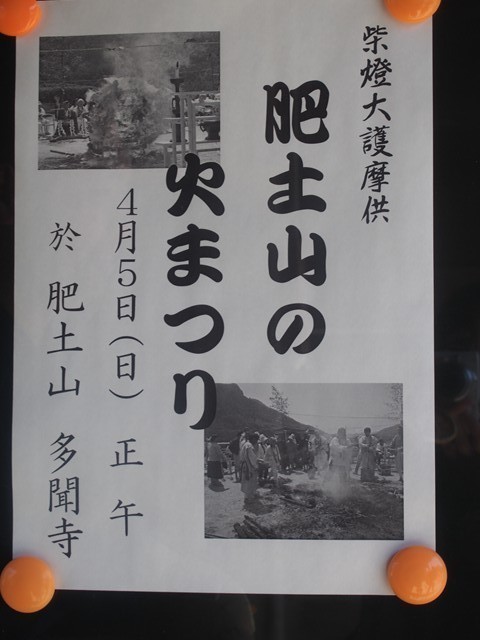 柴燈大護摩供
肥土山の
火まつり
4月5日(日) 正午
於 肥土山 多聞寺